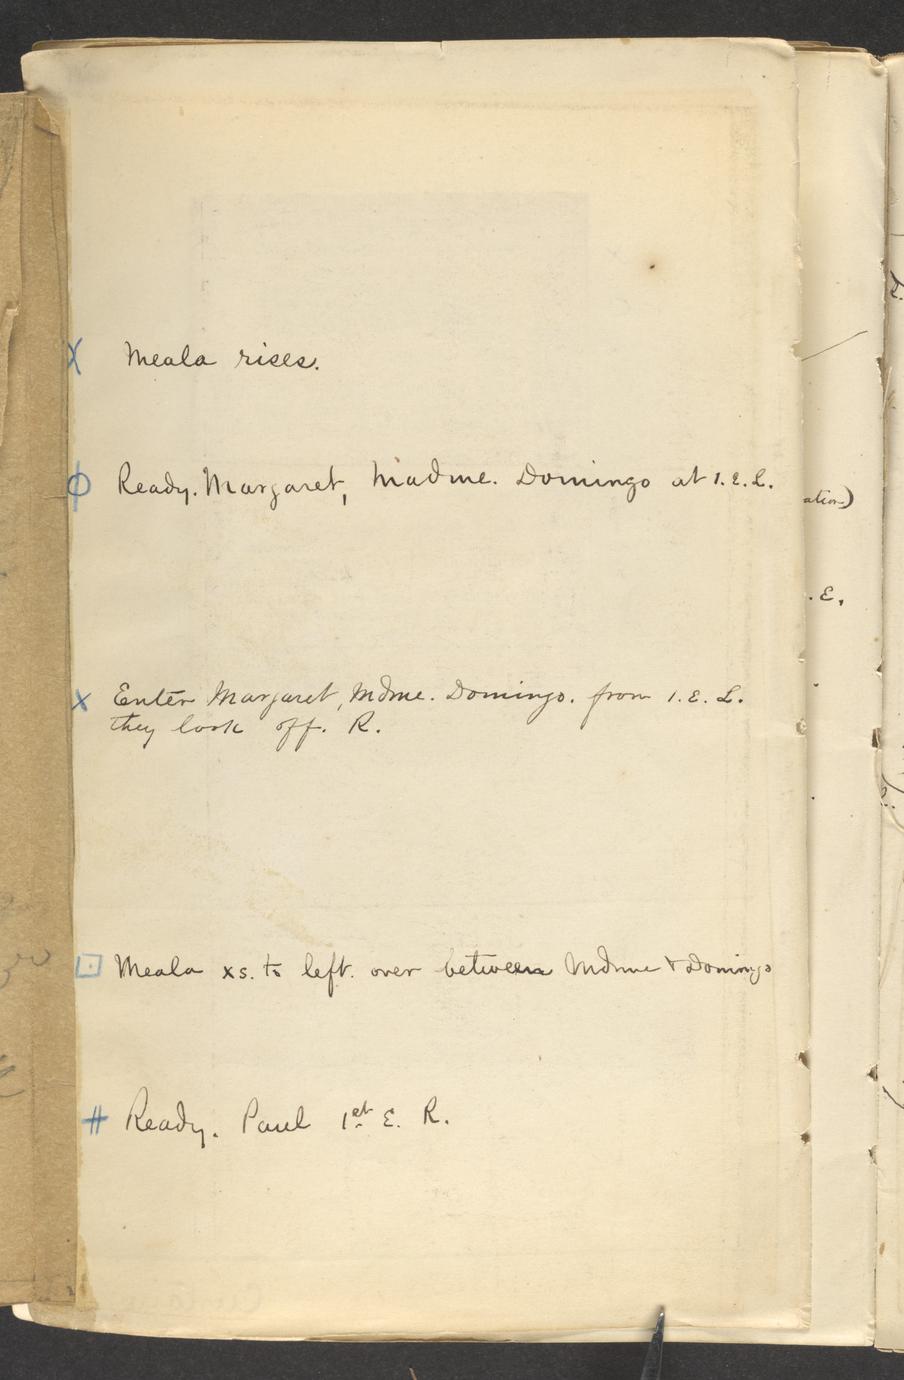 X Meala rises.
ϕ Ready. Margaret, Madme. Domingo at 1. E. L.
ation)
. E,
x Enter Margaret, Mdme. Domingo. from 1. E. L.
they look off. R.
⊡ Meala xs. to left. over between Mdme & Domingo
# Ready. Paul 1st E. R.